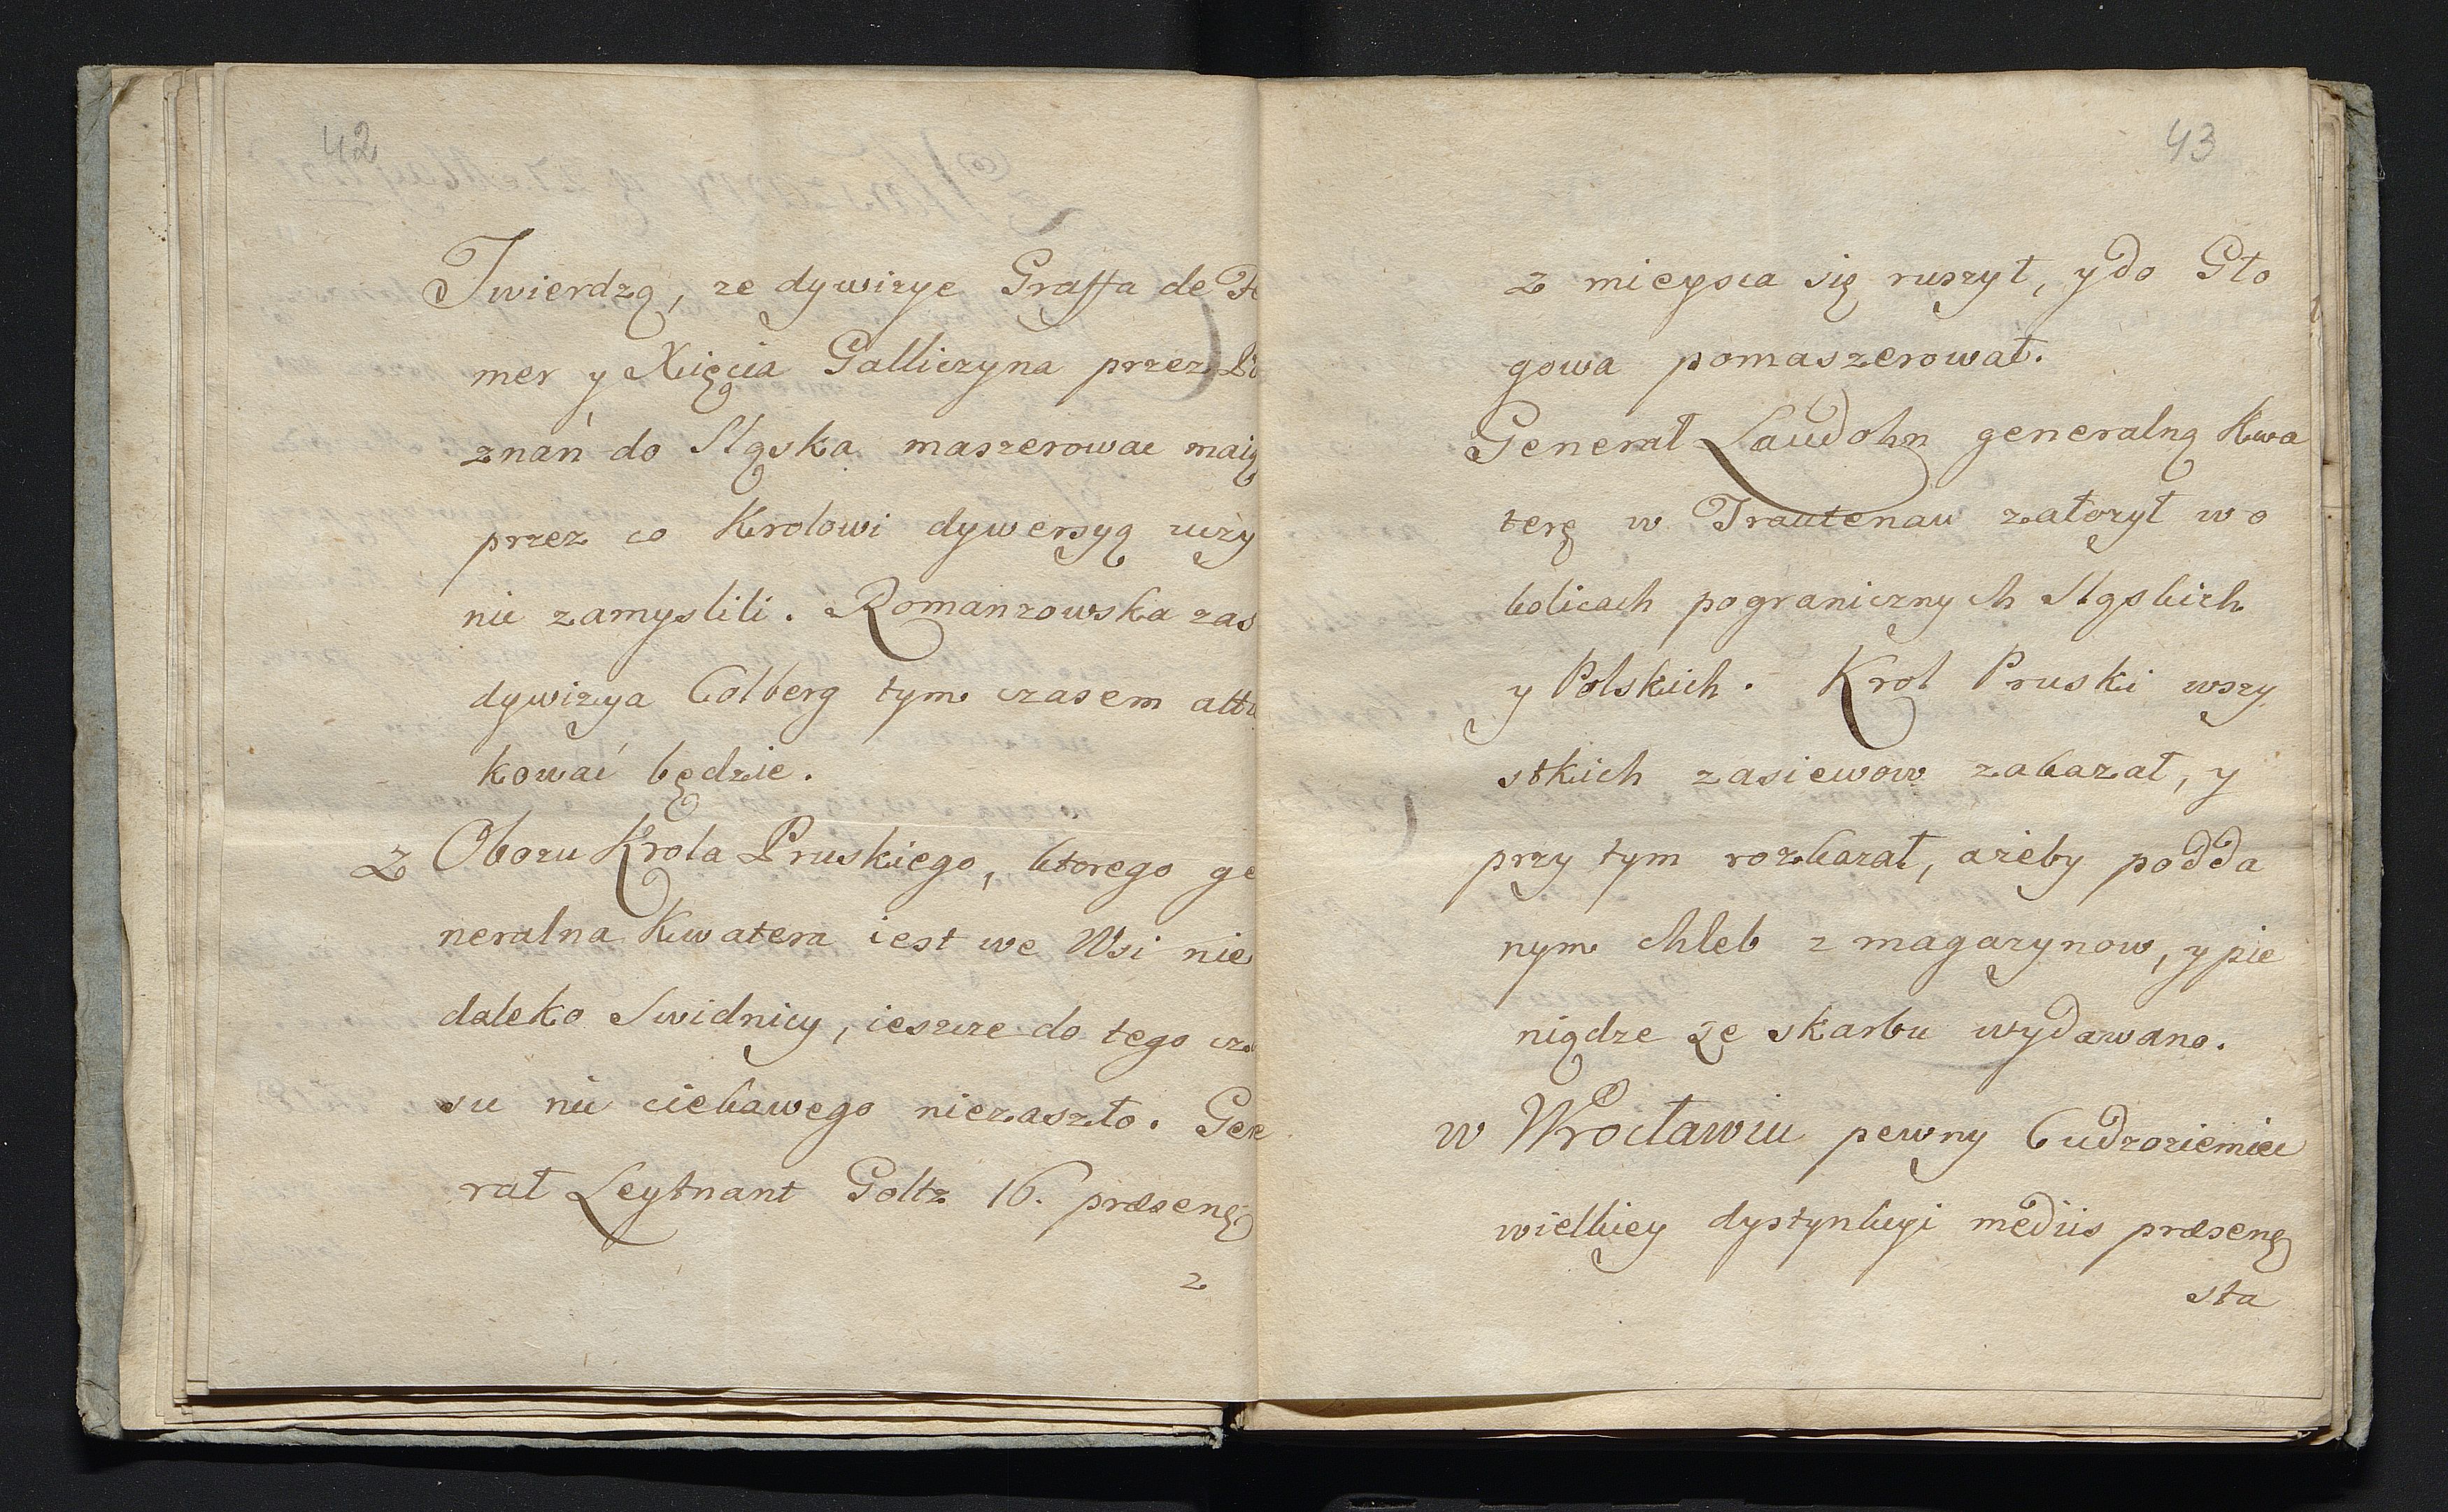 42
Twierdzą, ze dywizye Graffa de Fe
mer y Xięcia Galliczyna przez Po
znań do Sląska maszerowac maią
przez co Krolowi dywersyą uczy
nic zamyslili. Romanzowska zas
dywizya Colberg tym czasem atta
kować będzie.
z Obozu Krola Pruskiego, ktorego ge
neralna Kwatera iest we Wsi nie
daleko Swidnicy, ieszcze do tego cza
su nic ciekawego niezaszło. Gene
rał Leytnant Goltz 16. præseng
z
43
z mieysca się ruszył, y do Gło
gowa pomaszerował.
Generał Laudohn generalną Kwa
terę w Trautenau założył w o
kolicach pogranicznych Sląskich
y Polskich. Krol Pruski wszy
stkich zasiewow zakazał, y
przy tym rozkazał, ażeby podda
nym chleb z magazynow, y pie
niądze ze skarbu wydawano.
w Wrocławiu pewny Cudzoziemiec
wielkiey dystynkcyi mediis præseng
sta